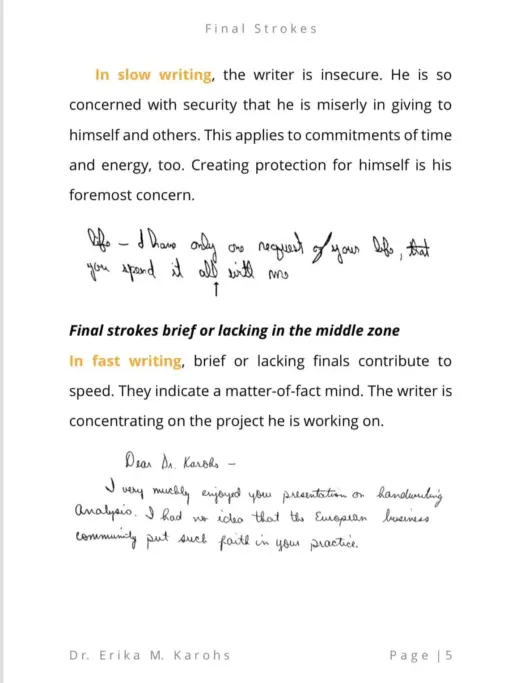 Final Strokes
In slow writing, the writer is insecure. He is so
concerned with security that he is miserly in giving to
himself and others. This applies to commitments of time
and energy, too. Creating protection for himself is his
foremost concern.
life – I have only one request of your life, that
you spend it all with me
↑
Final strokes brief or lacking in the middle zone
In fast writing, brief or lacking finals contribute to
speed. They indicate a matter-of-fact mind. The writer is
concentrating on the project he is working on.
Dear Dr. Karohs –
I very muchly enjoyed your presentation on handwriting
Analysis. I had no idea that the European business
community put such faith in your practice.
Dr. Erika M. Karohs
Page | 5